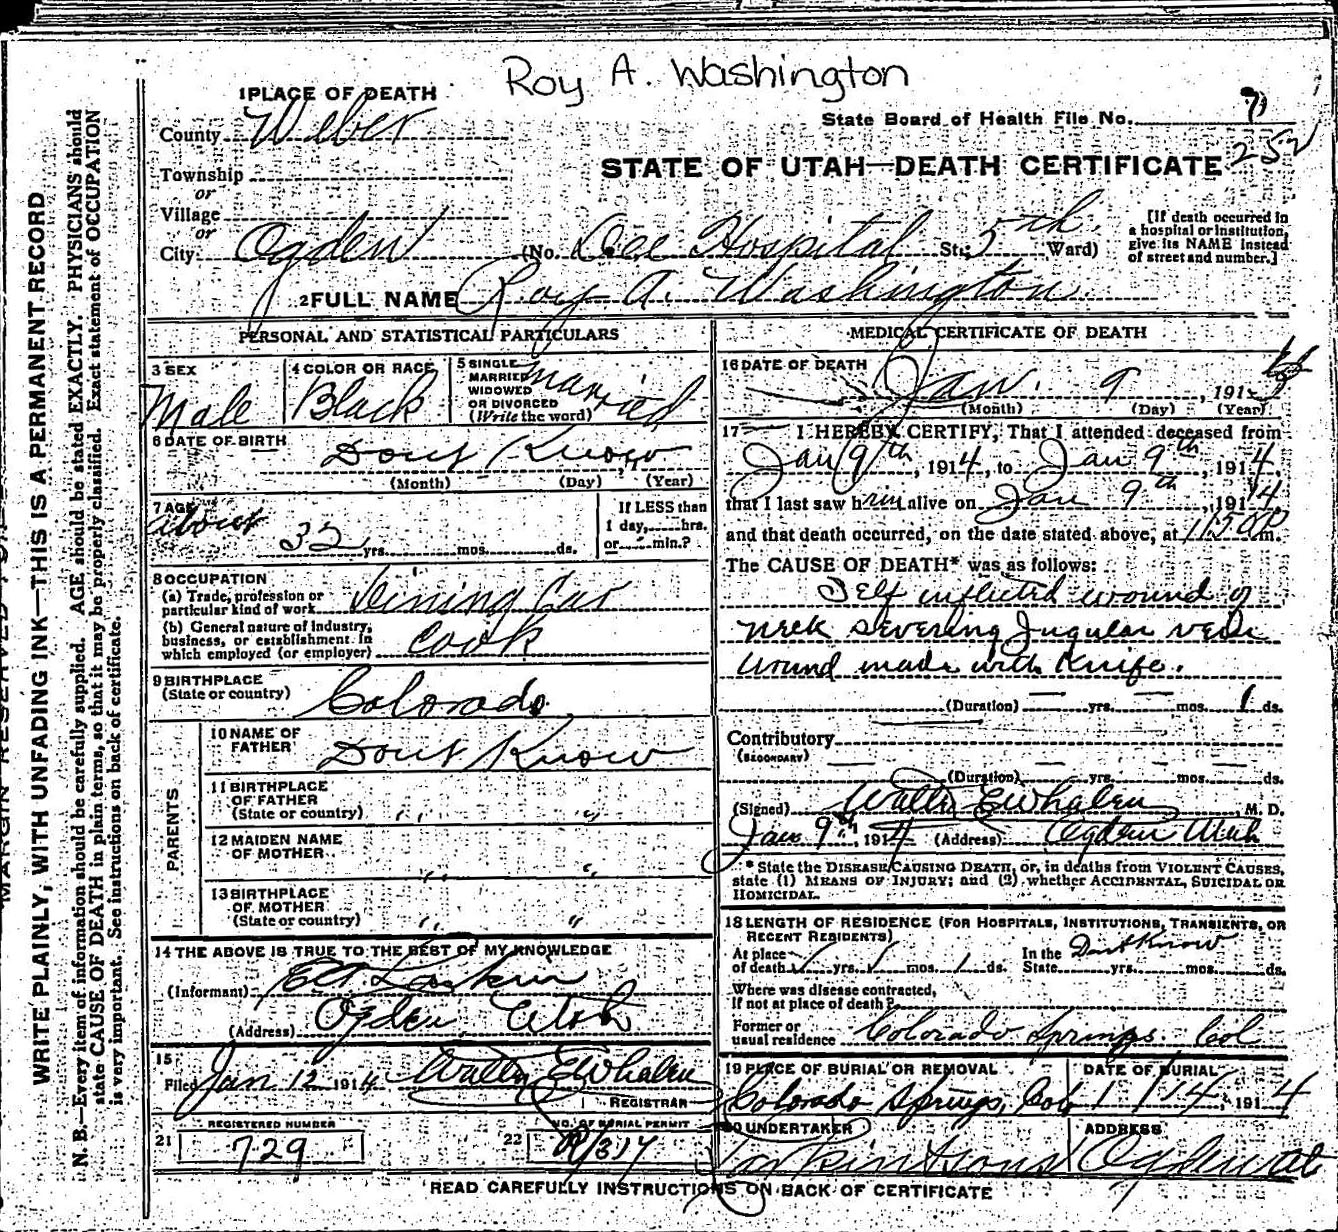 Roy A. Washington
1 PLACE OF DEATH
State Board of Health File No.
County Weber
252
STATE OF UTAH—DEATH CERTIFICATE
Township
or
Village
or
City Ogden (No. Dee Hospital St; 5th Ward)
[If death occurred in
a hospital or institution,
give its NAME instead
of street and number.]
2 FULL NAME Roy A. Washington
PERSONAL AND STATISTICAL PARTICULARS
3 SEX
Male
4 COLOR OR RACE
Black
5 SINGLE
MARRIED
WIDOWED
OR DIVORCED
(Write the word)
married
6 DATE OF BIRTH
Dont Know
(Month) (Day) (Year)
7 AGE
about
32 yrs. mos. ds.
If LESS than
1 day, hrs.
or min.?
8 OCCUPATION
(a) Trade, profession or
particular kind of work Dining Car
(b) General nature of industry,
business, or establishment in
which employed (or employer) Cook
9 BIRTHPLACE
(State or country) Colorado
PARENTS
10 NAME OF
FATHER Dont Know
11 BIRTHPLACE
OF FATHER
(State or country) " "
12 MAIDEN NAME
OF MOTHER " "
13 BIRTHPLACE
OF MOTHER
(State or country) " "
14 THE ABOVE IS TRUE TO THE BEST OF MY KNOWLEDGE
(Informant)
(Address) Ogden Utah
15
Filed Jan 12 1914 Walter E Whalen
REGISTRAR
REGISTERED NUMBER
21 729
NO. OF BURIAL PERMIT
22
MEDICAL CERTIFICATE OF DEATH
16 DATE OF DEATH
Jan. 9, 191
(Month) (Day) (Year)
17 I HEREBY CERTIFY, That I attended deceased from
Jan 9th, 1914, to Jan 9th, 1914,
that I last saw him alive on Jan 9th, 1914
and that death occurred, on the date stated above, at 1150P m.
The CAUSE OF DEATH* was as follows:
Self inflicted wound of
neck severing Jugular vein
wound made with Knife.
(Duration) yrs. mos. 1 ds.
Contributory
(SECONDARY)
(Duration) yrs. mos. ds.
(Signed) Walter E Whalen, M. D.
Jan 9th, 1914 (Address) Ogden Utah
* State the DISEASE CAUSING DEATH, or, in deaths from VIOLENT CAUSES,
state (1) MEANS OF INJURY; and (2) whether ACCIDENTAL, SUICIDAL OR
HOMICIDAL.
18 LENGTH OF RESIDENCE (FOR HOSPITALS, INSTITUTIONS, TRANSIENTS, OR
RECENT RESIDENTS)
At place
of death yrs. mos. 1 ds.
In the
State Dont Know yrs. mos. ds.
Where was disease contracted,
if not at place of death?
Former or
usual residence Colorado Springs. Col
19 PLACE OF BURIAL OR REMOVAL
Colorado Springs, Col
DATE OF BURIAL
1/14, 1914
20 UNDERTAKER
ADDRESS
READ CAREFULLY INSTRUCTIONS ON BACK OF CERTIFICATE
WRITE PLAINLY, WITH UNFADING INK—THIS IS A PERMANENT RECORD
N. B.—Every item of information should be carefully supplied. AGE should be stated EXACTLY. PHYSICIANS should
state CAUSE OF DEATH in plain terms, so that it may be properly classified. Exact statement of OCCUPATION
is very important. See instructions on back of certificate.